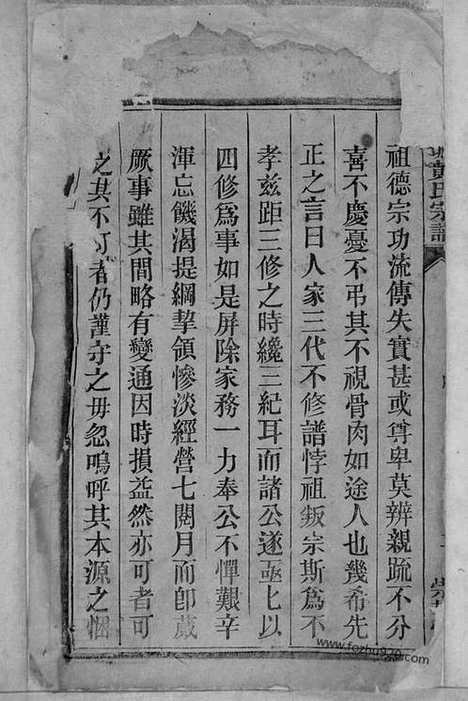 黃氏宗譜
祖德宗功流傳失實甚或尊卑莫辨親疏不分
喜不慶憂不弔其不視骨肉如途人也幾希先
正之言曰人家三代不修譜悖祖叛宗斯為不
孝兹距三修之時纔三紀耳而諸公遂亟亟以
四修爲事如是屏除家務一力奉公不憚艱辛
渾忘饑渴提綱挈領慘淡經營七閱月而卽蕆
厥事雖其間略有變通因時損益然亦可者可
之其不可者仍謹守之毋忽嗚呼其本源之悃
www.fozhu920.com